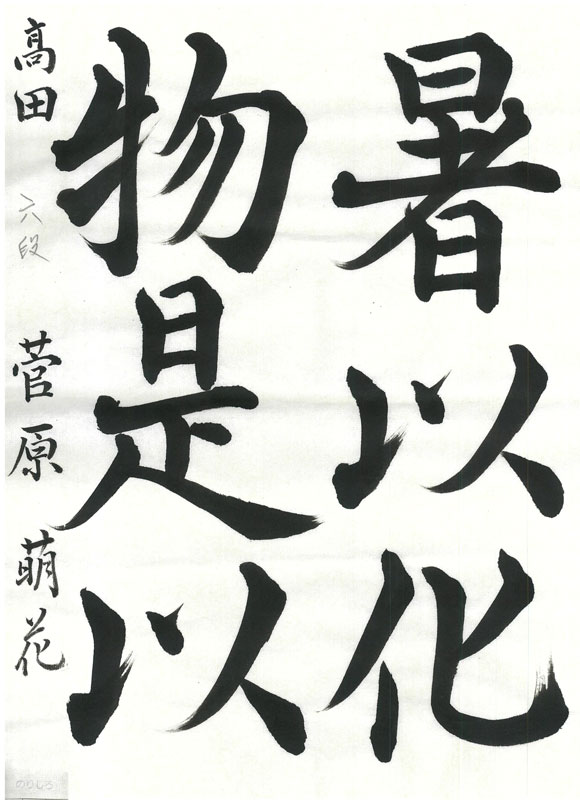 暑以化
物是以
高田 六段 菅原 萌花
のりしろ